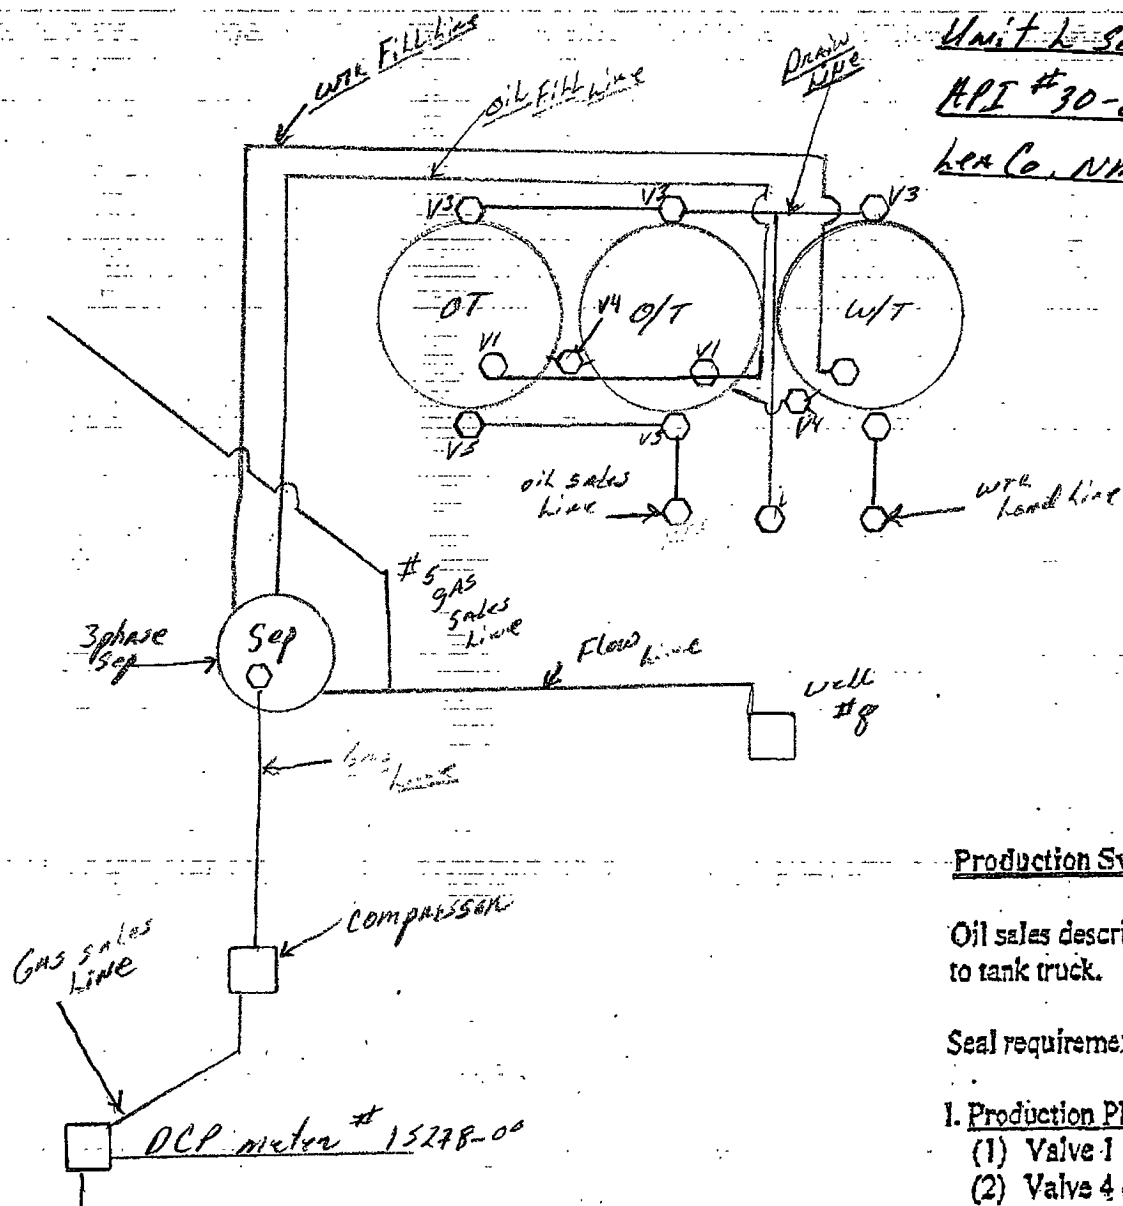 Unit L S
API #30-
Lea Co, NM
wtr Fill Line
oil Fill Line
Drain
Line
V3
V3
V3
OT
V4
O/T
W/T
V1
V1
V4
V5
V5
oil sales
Line
wtr
Load Line
#5
gAs
sales
Line
3phase
Sep
Sep
Flow Line
well
#8
Gas
Line
Compressor
Gas sales
Line
DCP meter # 15278-00
Production Sy
Oil sales descri
to tank truck.
Seal requiremen
1. Production Ph
(1) Valve 1
(2) Valve 4